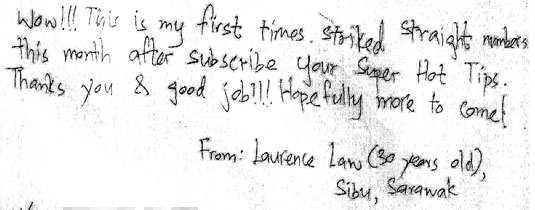 Wow!!! This is my first times. Striked straight numbers
this month after subscribe your Super Hot Tips.
Thanks you & good job!!! Hopefully more to come!
From: Laurence Law (30 years old),
Sibu, Sarawak